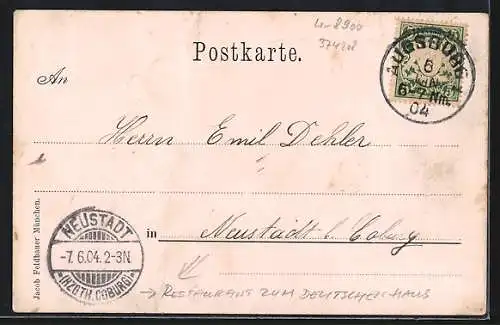 4-8900
374218
Postkarte.
AUGSBURG
6
6-7 Nm.
04
An
Herrn Emil Dehler
NEUSTADT
-7.6.04.2-3N
(HZGTH. COBURG)
in Neustadt b/ Coburg
Jacob Feldbauer München.
→ RESTAURANT ZUM DEUTSCHEN HAUS